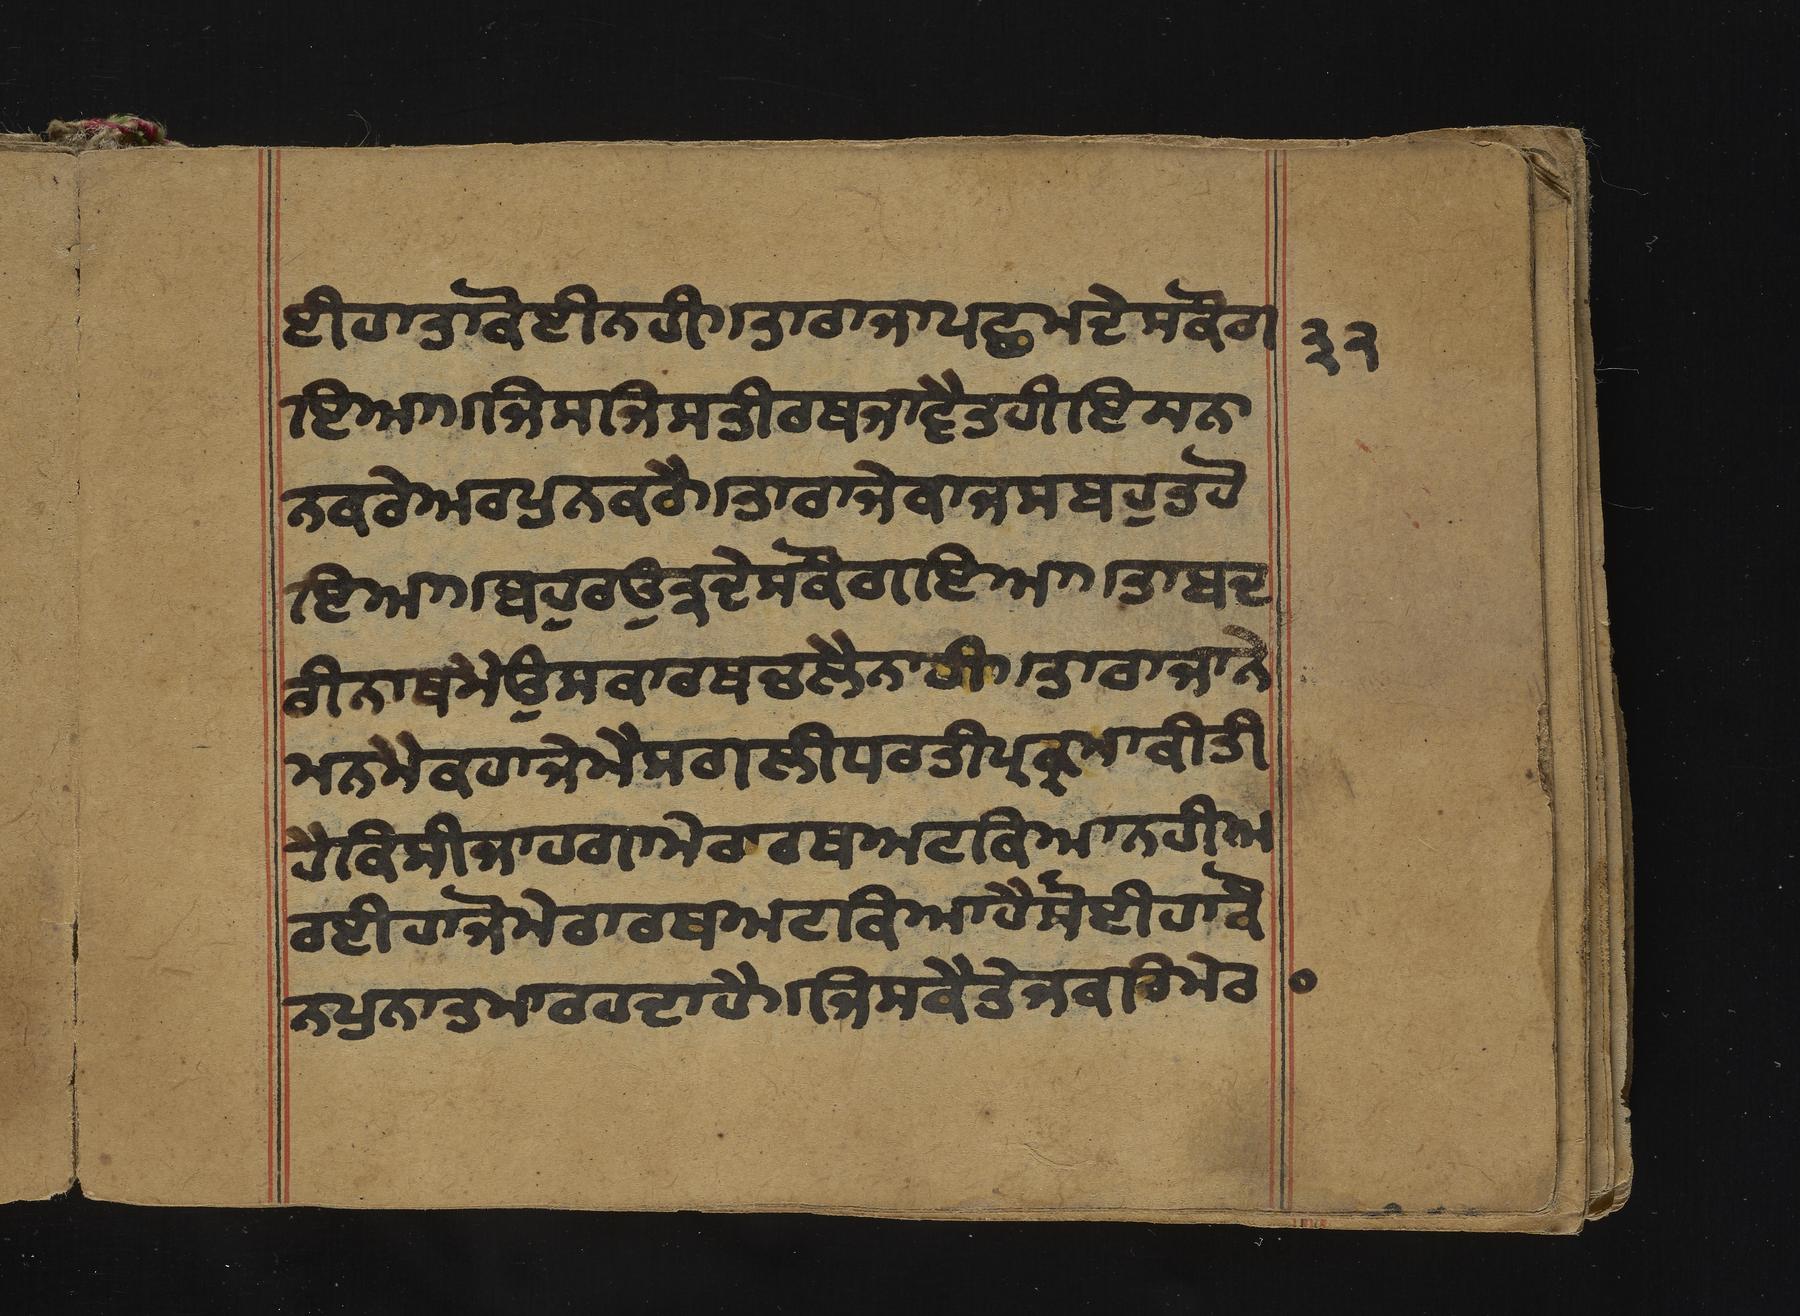 ਈਹਾਤਾਕੋਈਨਹੀ।ਤਾਰਾਜਾਪਛਮਦੇਸਕੌਗ ੩੨
ਇਆ।ਜਿਸਜਿਸਤੀਰਥਜਾਵੈਤਹੀਇਸਨਾ
ਨਕਰੇਅਰਪੁਨਕਰੈ।ਤਾਰਾਜੇਕਾਜਸਬਹੁਤਹੋ
ਇਆ।ਬਹੁਰਉਤ੍ਰਦੇਸਕੌਗਇਆ।ਤਾਬਦ
ਰੀਨਾਥਮੇਉਸਕਾਰਥਚਲੈਨਾਹੀ।ਤਾਰਾਜਾਨੇ
ਮਨਮੈਕਹਾਜੇਮੈਸਗਲੀਧਰਤੀਪ੍ਰਕ੍ਰਮਾਕੀਤੀ
ਹੈਕਿਸੀਜਾਹਗਾਮੇਰਾਰਥਅਟਕਿਆਨਹੀਅ
ਰਈਹਾਜੋਮੇਰਾਰਥਅਟਕਿਆਹੈਸੋਈਹਾਕੌ
ਨਪੁਨਾਤਮਾਰਹਦਾਹੈ।ਜਿਸਕੈਤੇਜਕਰਿਮੇਰ ੦